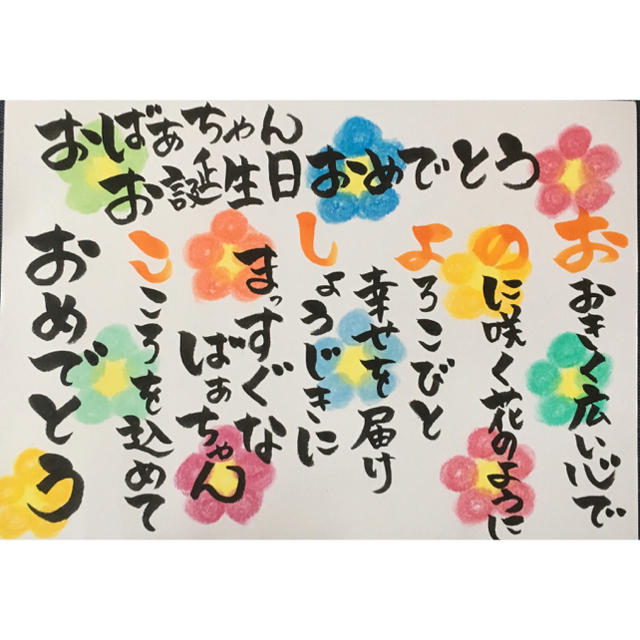 おばぁちゃん
お誕生日おめでとう
おおきく広い心で
のに咲く花のように
よろこびと
幸せを届け
しょうじきに
まっすぐな
ばぁちゃん
こころを込めて
おめでとう